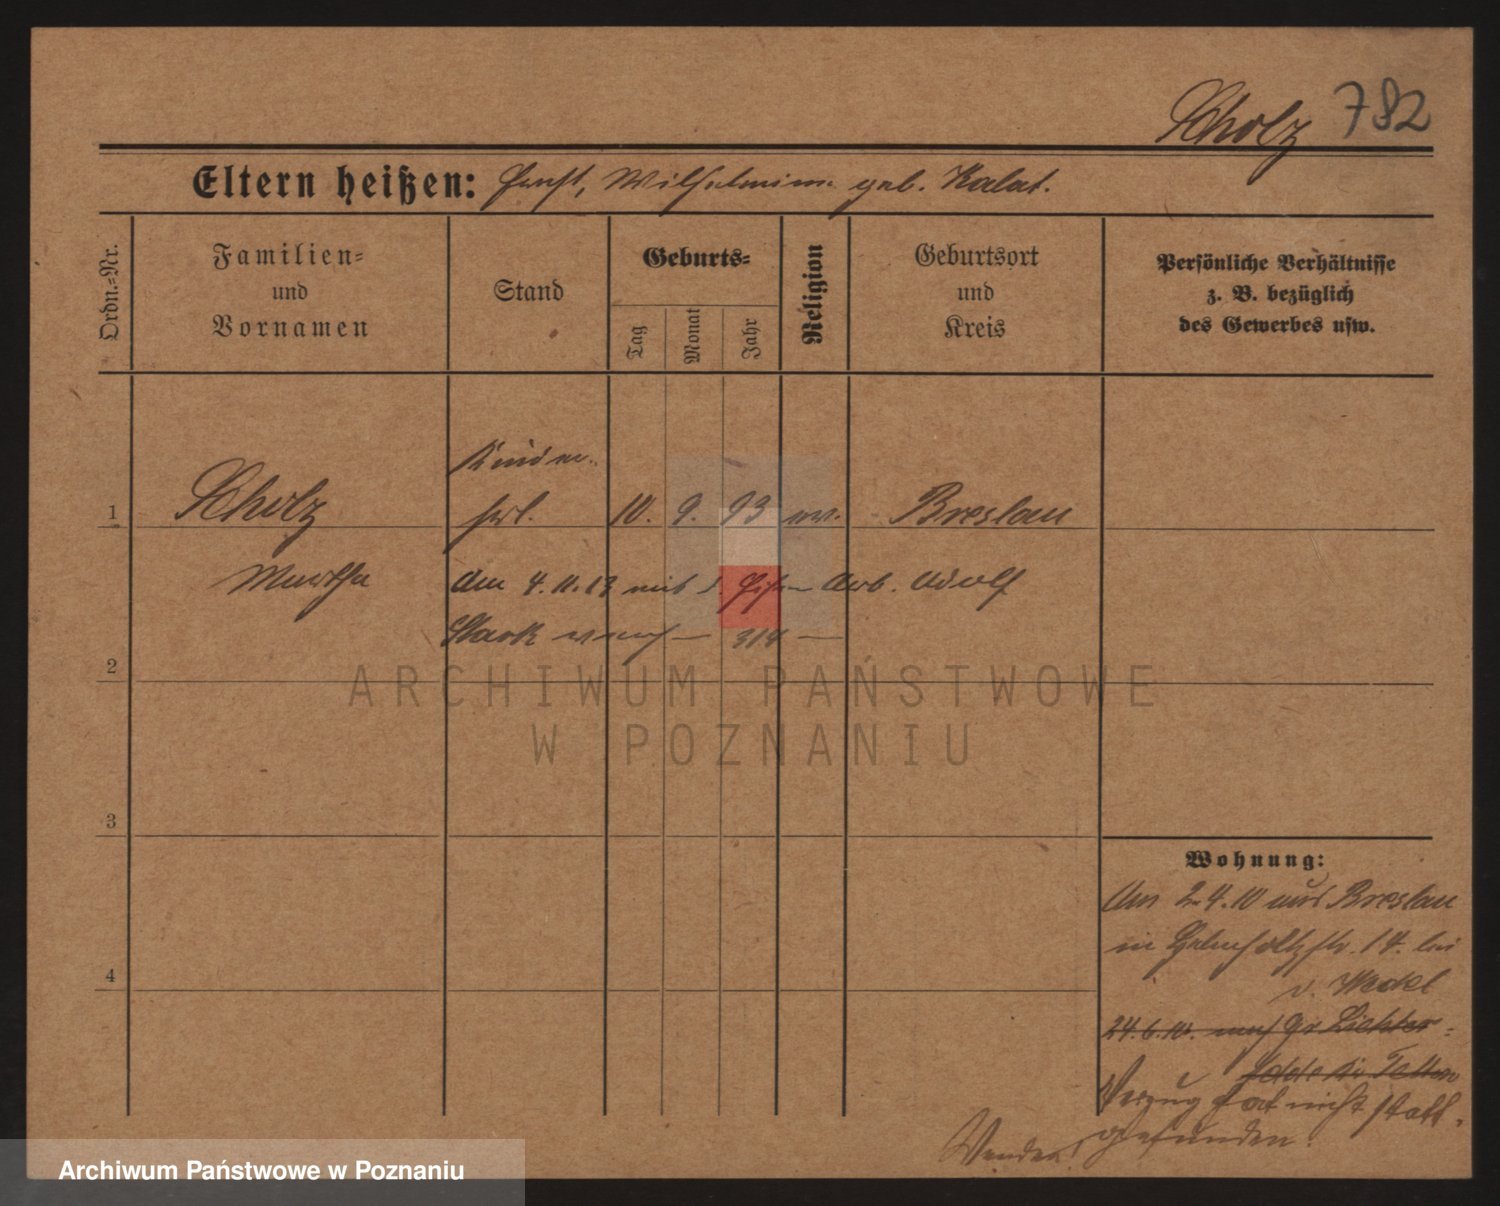 Scholz 782
Eltern heißen: Ernst, Wilhelmine geb. Kalat.
Ordn.-Nr.
Familien=
und
Vornamen
Stand
Geburts=
Tag
Monat
Jahr
Religion
Geburtsort
und
Kreis
Persönliche Verhältnisse
z. B. bezüglich
des Gewerbes usw.
Kinder.
1 Scholz frl. 10. 9. 93 ev. Breslau
Martha am 4.11.13 mit d. Arb. Adolf
Stark 314
2
ARCHIWUM PAŃSTWOWE
W POZNANIU
3
4
Wohnung:
Am 2.4.10 aus Breslau
in str. 14. bei
v. Wedel
24.6.10. nach Gr. Lichter=
felde
Verzug hat nicht statt=
gefunden.
Wenden!
Archiwum Państwowe w Poznaniu